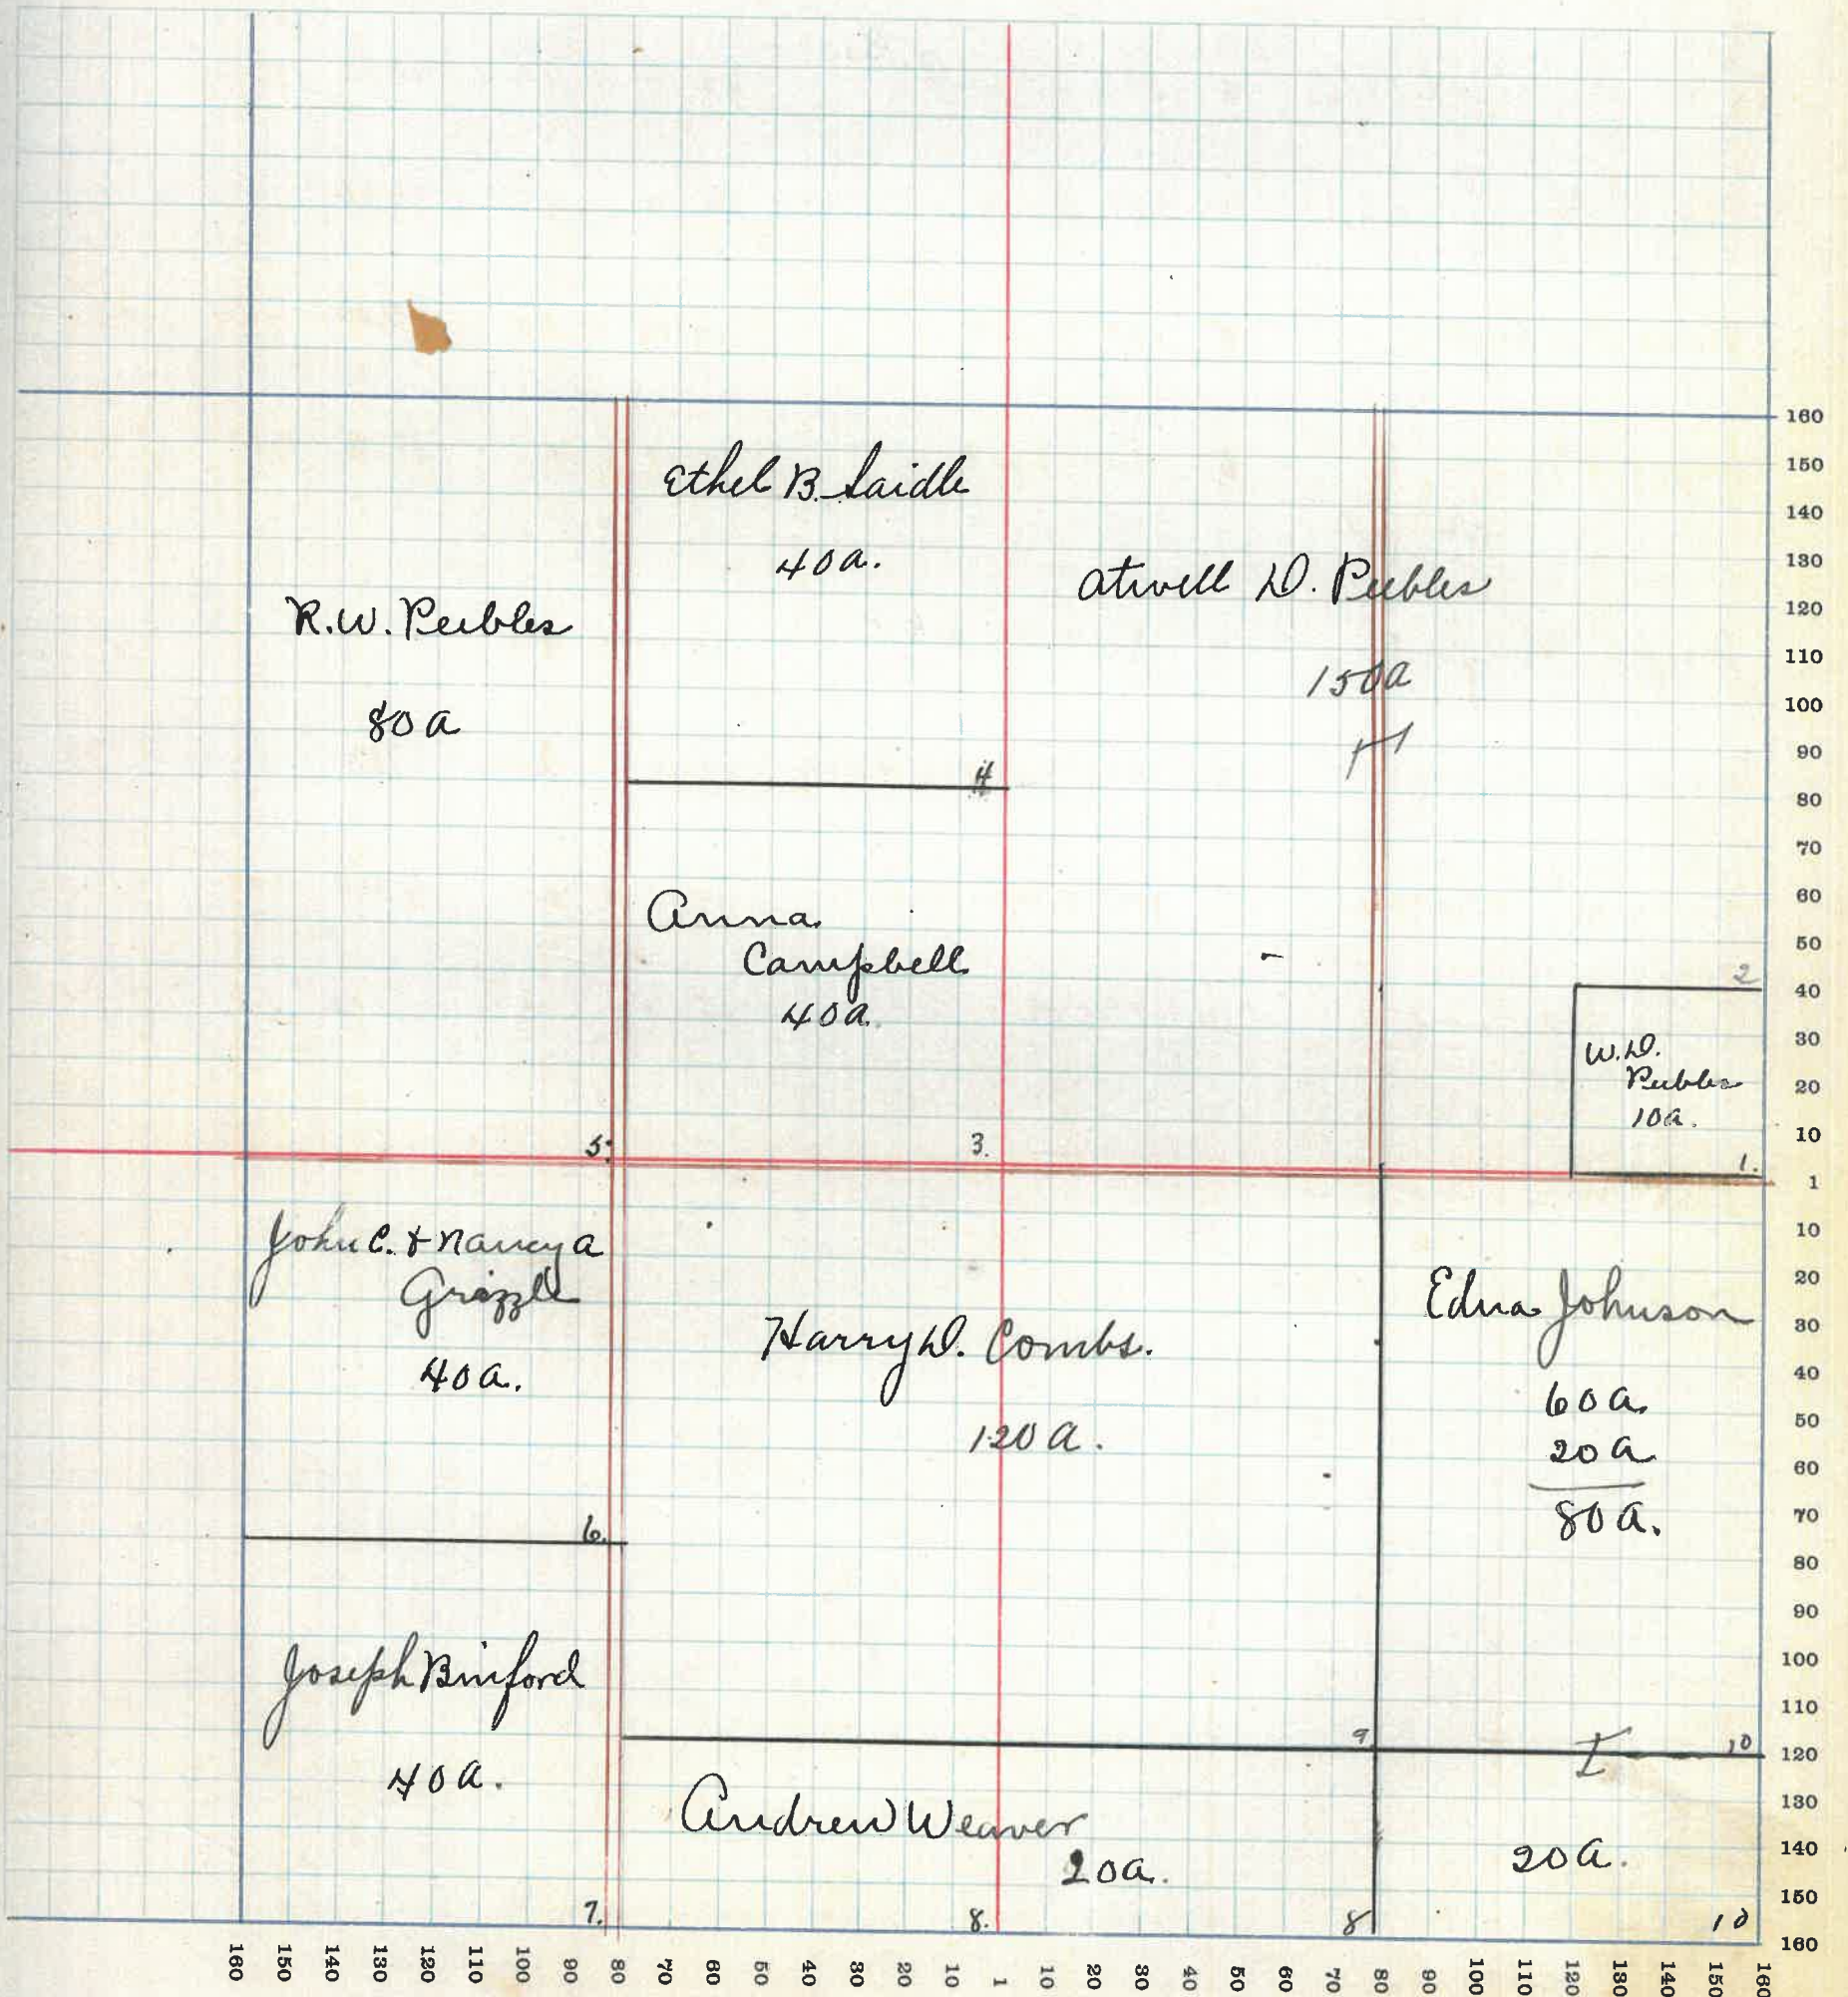 Ethel B. Saidle
40a.
Atwell D. Peebles
150a
R.W. Peebles
80a
4
Anna
Campbell
40a.
2
W.D.
Peebles
10a.
1.
5.
3.
John C. & Nancy A
Grizzle
40a.
Harry D. Combs.
120a.
Edna Johnson
60a.
20a
80a.
6.
Joseph Binford
40a.
9
10
Andrew Weaver
20a.
20a.
7.
8.
8
10
160
150
140
130
120
110
100
90
80
70
60
50
40
30
20
10
1
10
20
30
40
50
60
70
80
90
100
110
120
130
140
150
160
160 150 140 130 120 110 100 90 80 70 60 50 40 30 20 10 1 10 20 30 40 50 60 70 80 90 100 110 120 130 140 150 160